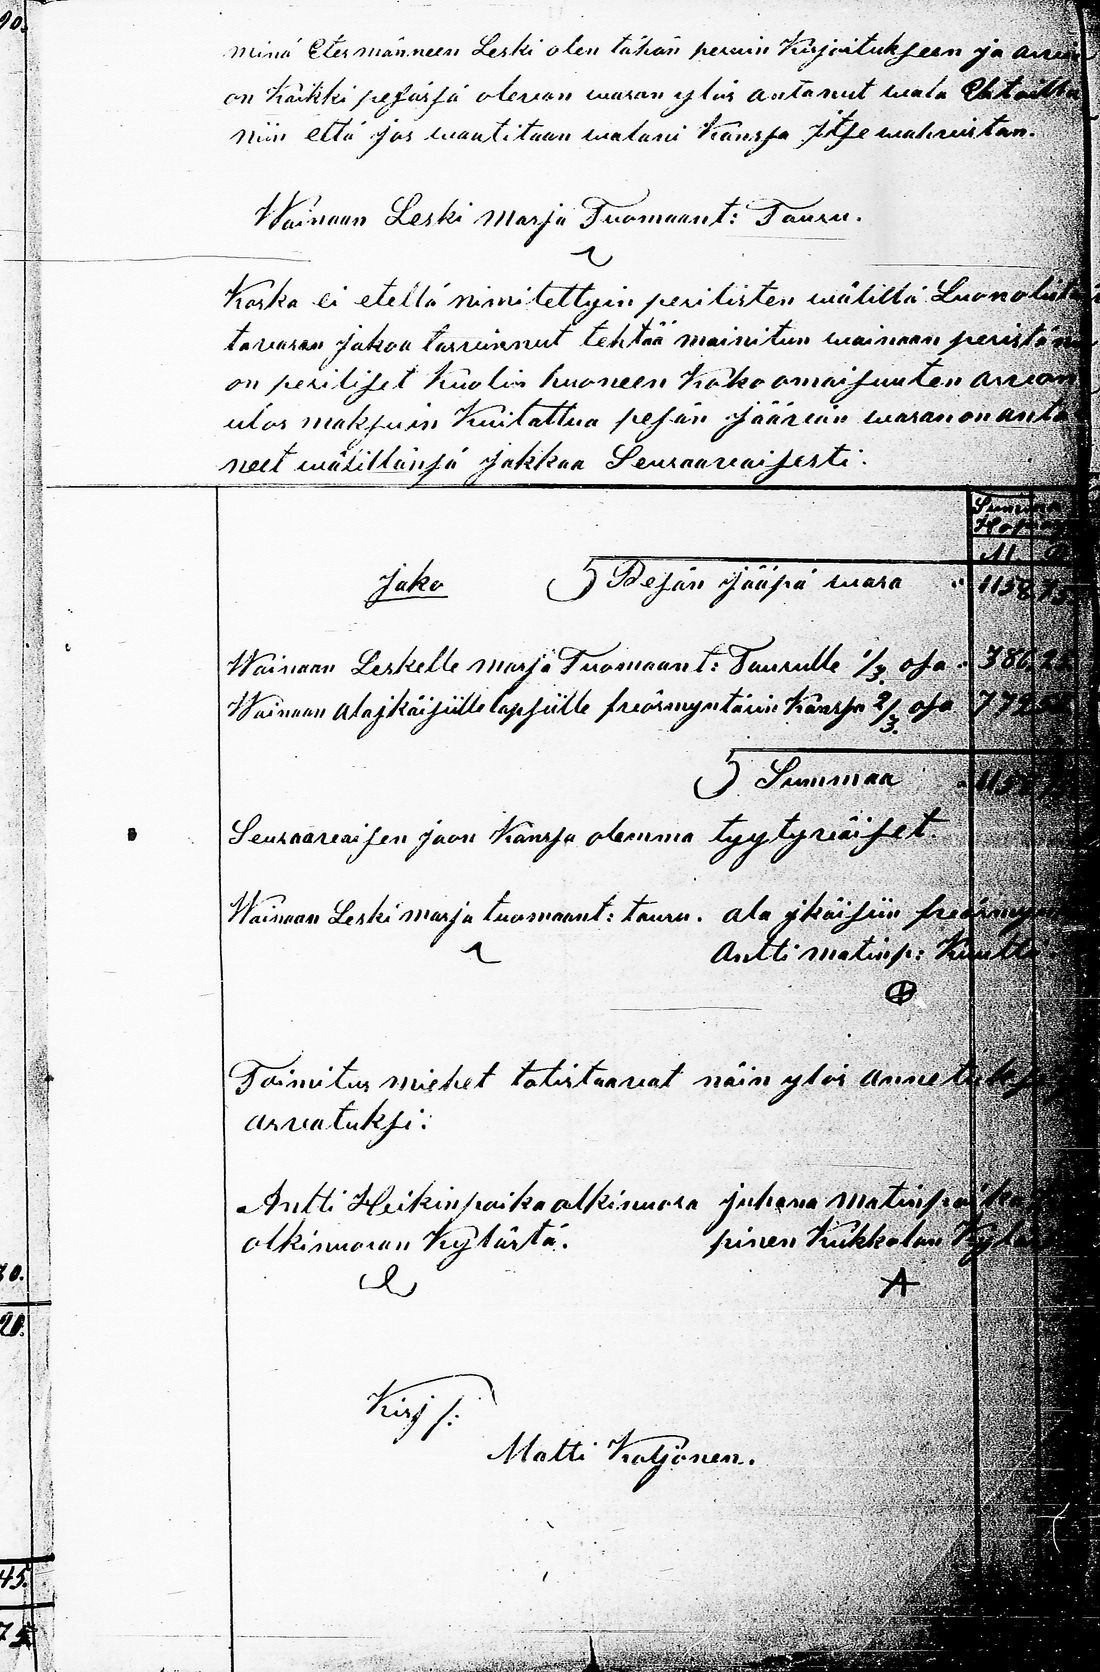 90.
minä Etesmänneen Leski olen tähän peruin Kirjoitukseen ja
on Kaikki pesässä olewan waran ylös antanut wala Ehtoilla
niin että jos waatitaan walani Kanssa Jtse wahwistan.
Wainaan Leski Marja Tuomaant: Tauru.
Koska ei etellä nimitettyin perilisten wälillä
tawaran jakoa tarwinnut tehtää mainitun wainaan
on periliset Kuolin huoneen Koko omaisuuten arwon
ulos maksuin Kuitattua pesän jääwän waran on anta
neet wälillänsä jakkaa Seuraawaisesti:
Summa
M P
Jako Pesän jääpä wara " 1158 75
Wainaan Leskelle marja Tuomaant: Taurulle 1/3. osa " 386 25
Wainaan alajkäisille lapsille freörmyntärin Kanssa 2/3. osa 772 50
Summaa " 1158 75
Seuraawaisen jaon Kanssa olemma tyytywäiset.
Wainaan Leski marja tuomaant: tauru. ala jkäisiin
Antti matinp:
Toimitus miehet totistaawat näin ylös annetuksi
arwatuksi:
Antti Heikinpoika olkinuora juhana matinpoika
olkinuoran Kylästä. pinen Kukkolan Kylästä
A
Kirj f:
Matti Kotjonen.
30.
20.
45.
75